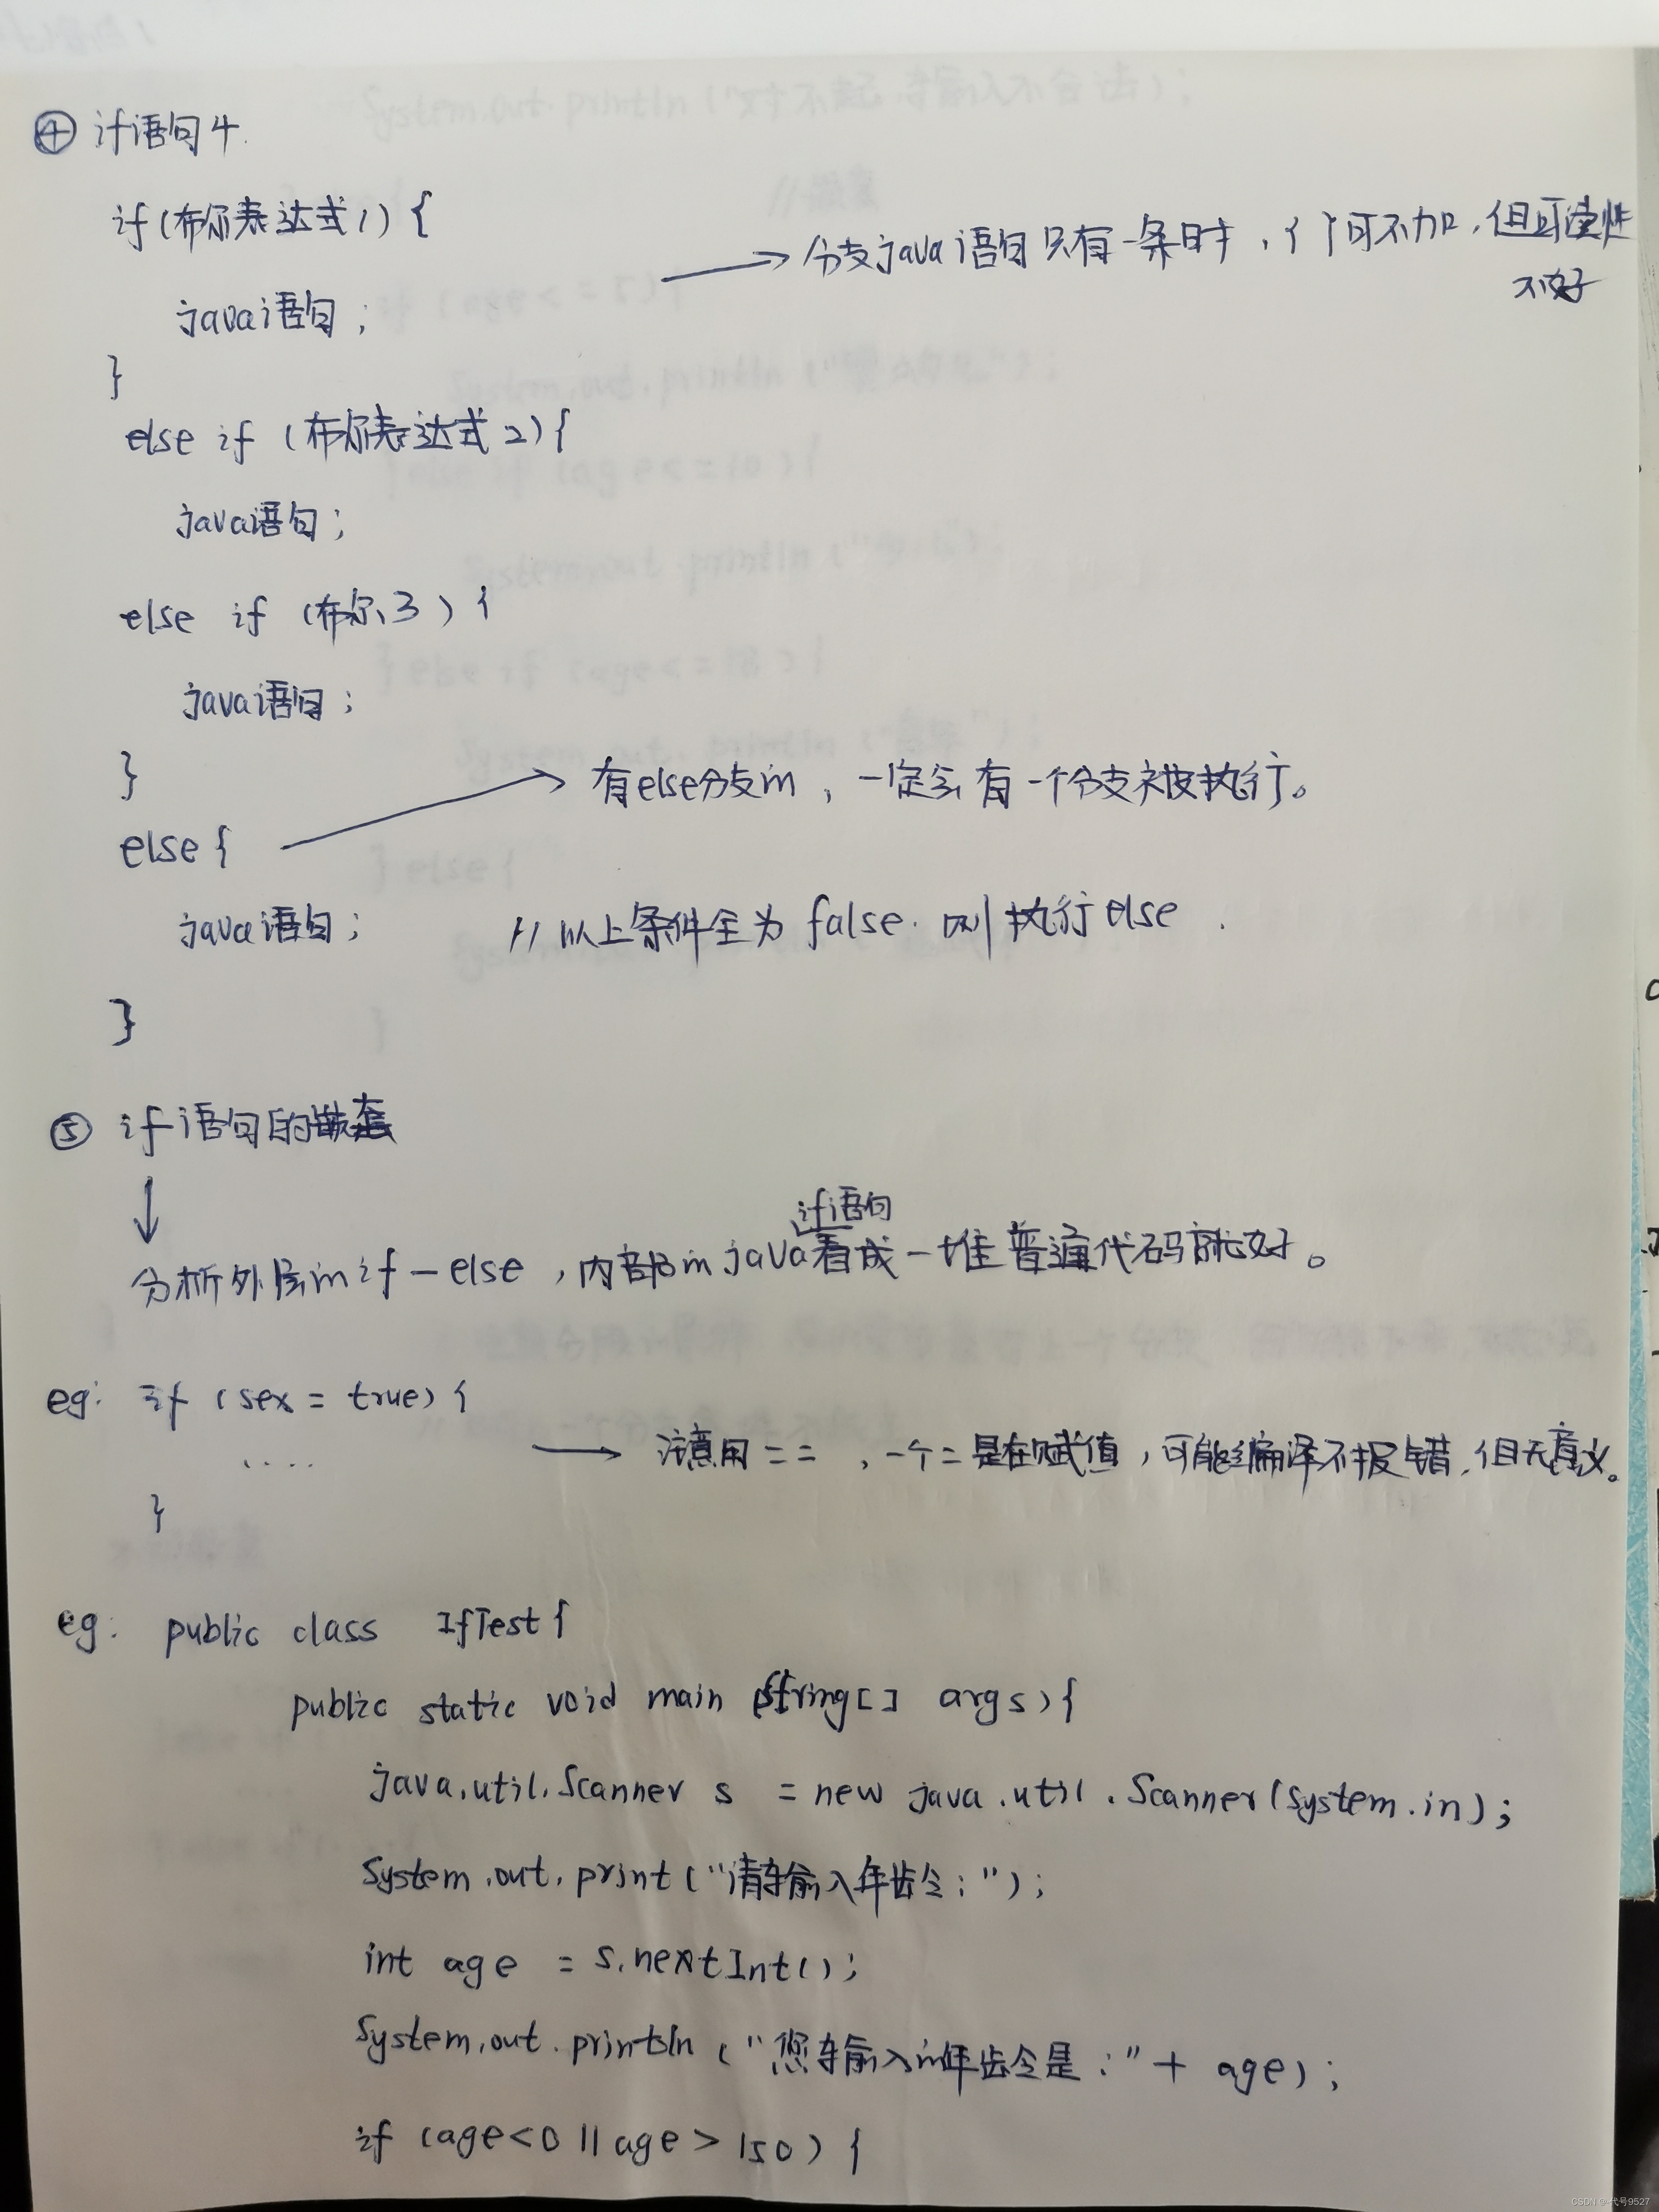 ④ if语句4.
if(布尔表达式1) {
→ 分支java语句只有一条时,{ }可不加,但可读性
不好
java语句;
}
else if (布尔表达式2){
java语句;
else if (布尔、3) {
java语句;
}
else {
→ 有else分支的,一定会有一个分支被执行。
java语句; // 以上条件全为false.则执行else.
}
⑤ if语句的嵌套
↓
if语句
分析外层的if-else,内部的java看成一堆普通代码就好。
eg: if (sex = true) {
....
→ 注意用==,一个=是在赋值,可能编译不报错,但无意义。
}
eg: public class IfTest {
public static void main (String[] args){
java.util.Scanner s = new java.util.Scanner(System.in);
System.out.print("请输入年龄:");
int age = s.nextInt();
System.out.println("您输入的年龄是:"+ age);
if (age<0 || age>150) {
CSDN @代号9527